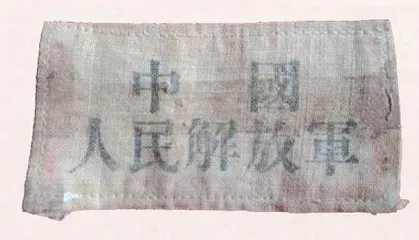 中國
人民解放軍